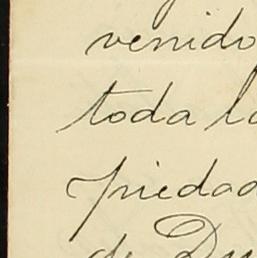 venido
toda la
piedad
de Du